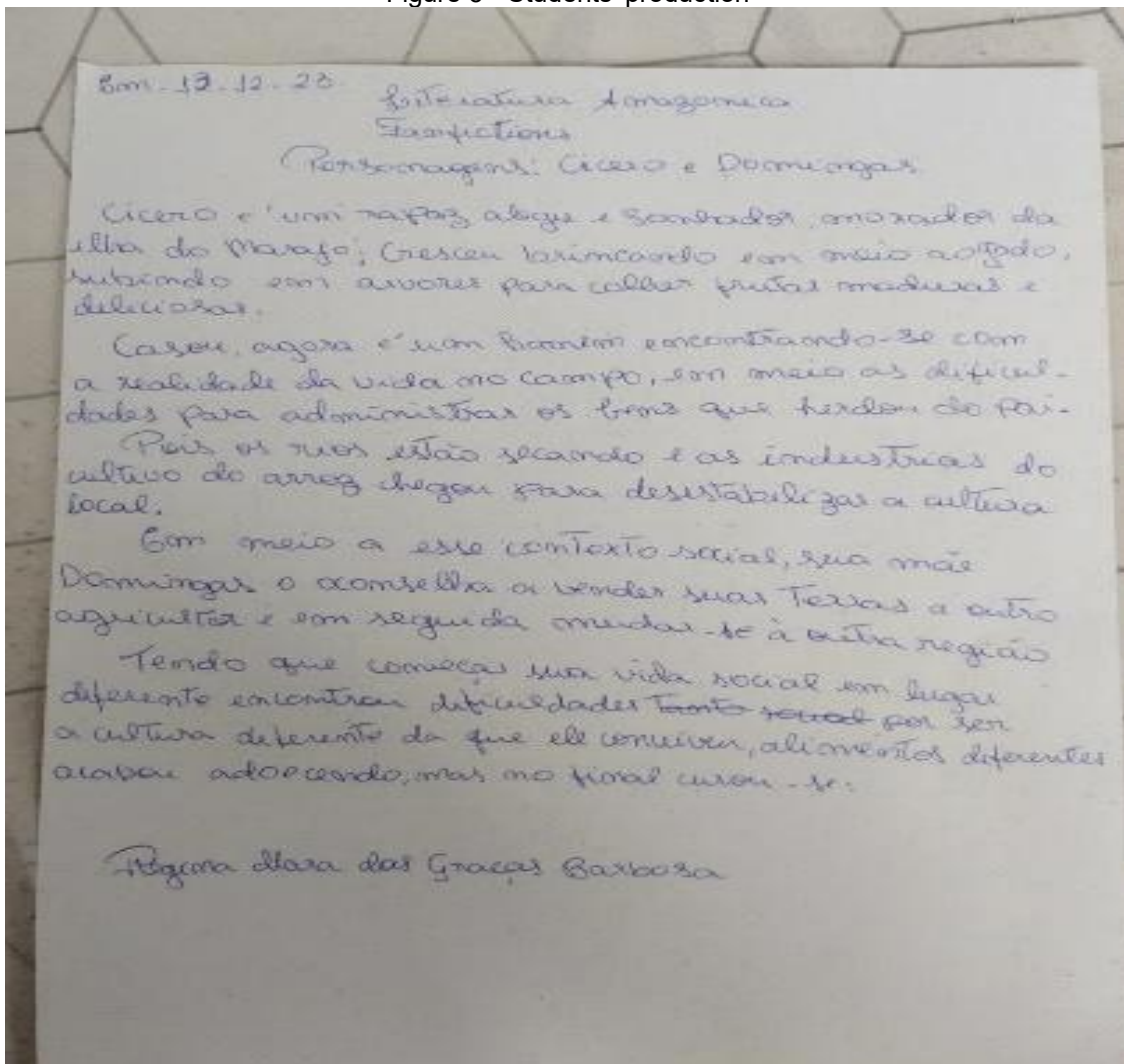 Figure 5 - Students' production
Em. 12.12.23.
Literatura Amazonica
Fanfictions
Personagens: Cicero e Domingas
Cicero e' um rapaz alegre e sonhador, morador da
ilha do Marajo; Cresceu brincando em meio ao gado,
subindo em arvores para colher frutas maduras e
deliciosas.
Casou, agora e' um homem encontrando-se com
a realidade da vida no campo, em meio as dificul-
dades para administrar os bens que herdou do pai.
Pois os rios estão secando e as industrias do
cultivo do arroz chegou para desestabilizar a cultura
local.
Em meio a esse contexto social, sua mãe
Domingas o aconselha a vender suas Terras a outro
agricultor e em seguida mudar-se à outra região
Tendo que começar sua vida social em lugar
diferente encontrou dificuldades tanto social por ser
a cultura diferente da que ele conviveu, alimentos diferentes
acabou adoecendo, mas no final curou-se.
Regina Mara das Graças Barbosa